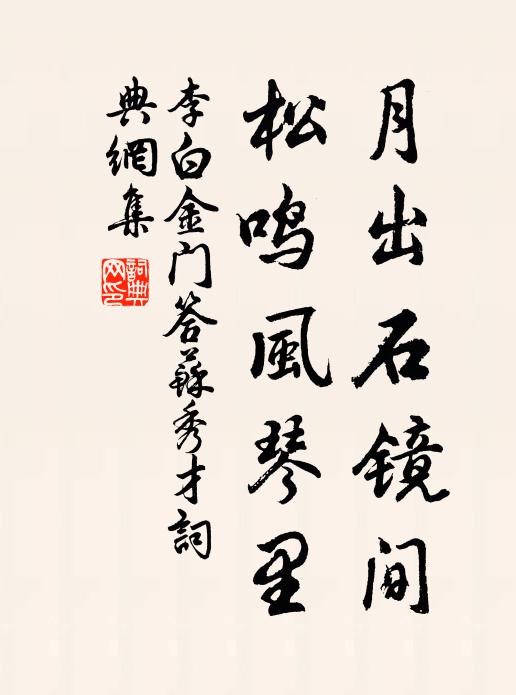 月出石镜间
松鸣風琴里
李白金门答蘇秀才詞
典網集
詞典
网印